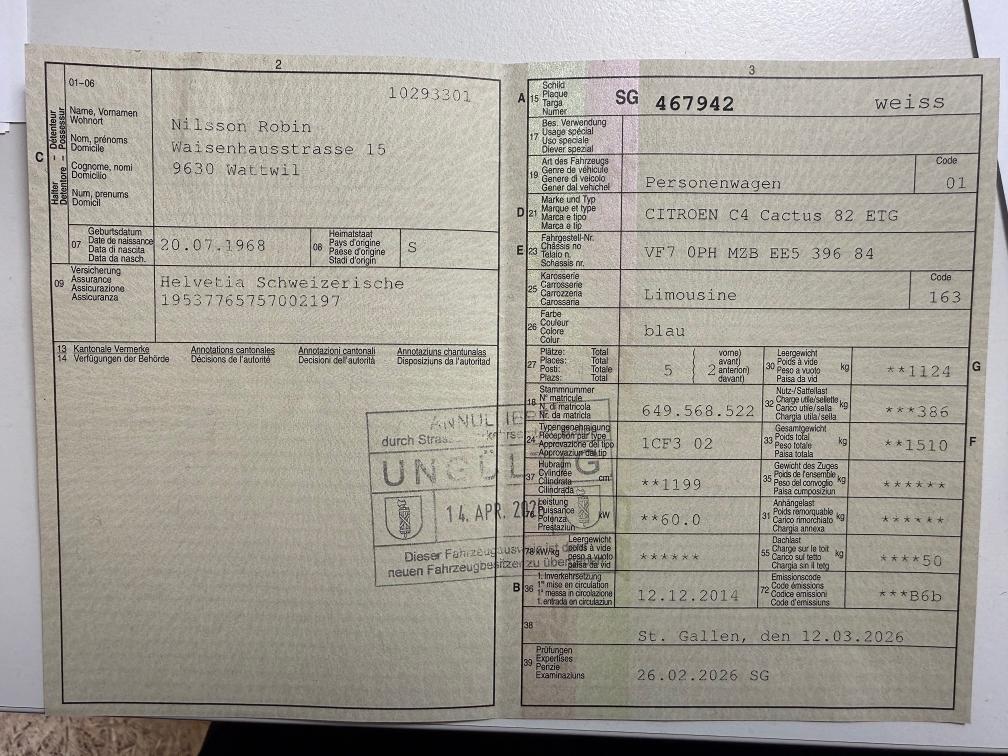 2
01-06
10293301
C
Halter – Détenteur
Detentore – Possessur
Name, Vornamen
Wohnort
Nom, prénoms
Domicile
Cognome, nomi
Domicilio
Num, prenums
Domicil
Nilsson Robin
Waisenhausstrasse 15
9630 Wattwil
07
Geburtsdatum
Date de naissance
Data di nascita
Data da nasch.
20.07.1968
08
Heimatstaat
Pays d'origine
Paese d'origine
Stadi d'origin
S
09
Versicherung
Assurance
Assicurazione
Assicuranza
Helvetia Schweizerische
19537765757002197
13 Kantonale Vermerke
14 Verfügungen der Behörde
Annotations cantonales
Décisions de l'autorité
Annotazioni cantonali
Decisioni dell'autorità
Annotaziuns chantunalas
Disposiziuns da l'autoritad
durch
UNGÜLTIG
14. APR.
Dieser Fahrzeugausweis ist
neuen Fahrzeugbesitzer zu
3
A 15
Schild
Plaque
Targa
Numer
SG 467942 weiss
17
Bes. Verwendung
Usage spécial
Uso speciale
Diever spezial
19
Art des Fahrzeugs
Genre de véhicule
Genere di veicolo
Gener dal vehichel
Personenwagen
Code
01
D 21
Marke und Typ
Marque et type
Marca e tipo
Marca e tip
CITROEN C4 Cactus 82 ETG
E 23
Fahrgestell-Nr.
Châssis no
Telaio n.
Schassis nr.
VF7 0PH MZB EE5 396 84
25
Karosserie
Carrosserie
Carrozzeria
Carossaria
Limousine
Code
163
26
Farbe
Couleur
Colore
Colur
blau
27
Plätze: Total
Places: Total
Posti: Totale
Plazs: Total
5
2
vorne)
avant)
anteriori)
davant)
30
Leergewicht
Poids à vide
Peso a vuoto
Paisa da vid
kg
**1124
G
18
Stammnummer
N° matricule
N. di matricola
Nr. da matricla
649.568.522
32
Nutz-/Sattellast
Charge utile/sellette
Carico utile/sella
Chargia utila/sella
kg
***386
24
Typengenehmigung
Réception par type
Approvazione del tipo
Approvaziun dal tip
1CF3 02
33
Gesamtgewicht
Poids total
Peso totale
Paisa totala
kg
**1510
F
37
Hubraum
Cylindrée
Cilindrata
Cilindrada
cm³
**1199
35
Gewicht des Zuges
Poids de l'ensemble
Peso del convoglio
Paisa cumposiziun
kg
******
Leistung
Puissance
Potenza
Prestaziun
kW
**60.0
31
Anhängelast
Poids remorquable
Carico rimorchiato
Chargia annexa
kg
******
78 kW/kg
Leergewicht
poids à vide
peso a vuoto
paisa da vid
******
55
Dachlast
Charge sur le toit
Carico sul tetto
Chargia sin il tetg
kg
****50
B 36
1. Inverkehrsetzung
1re mise en circulation
1a messa in circolazione
1. entrada en circulaziun
12.12.2014
72
Emissionscode
Code émissions
Codice emissioni
Code d'emissiuns
***B6b
38
St. Gallen, den 12.03.2026
39
Prüfungen
Expertises
Perizie
Examinaziuns
26.02.2026 SG